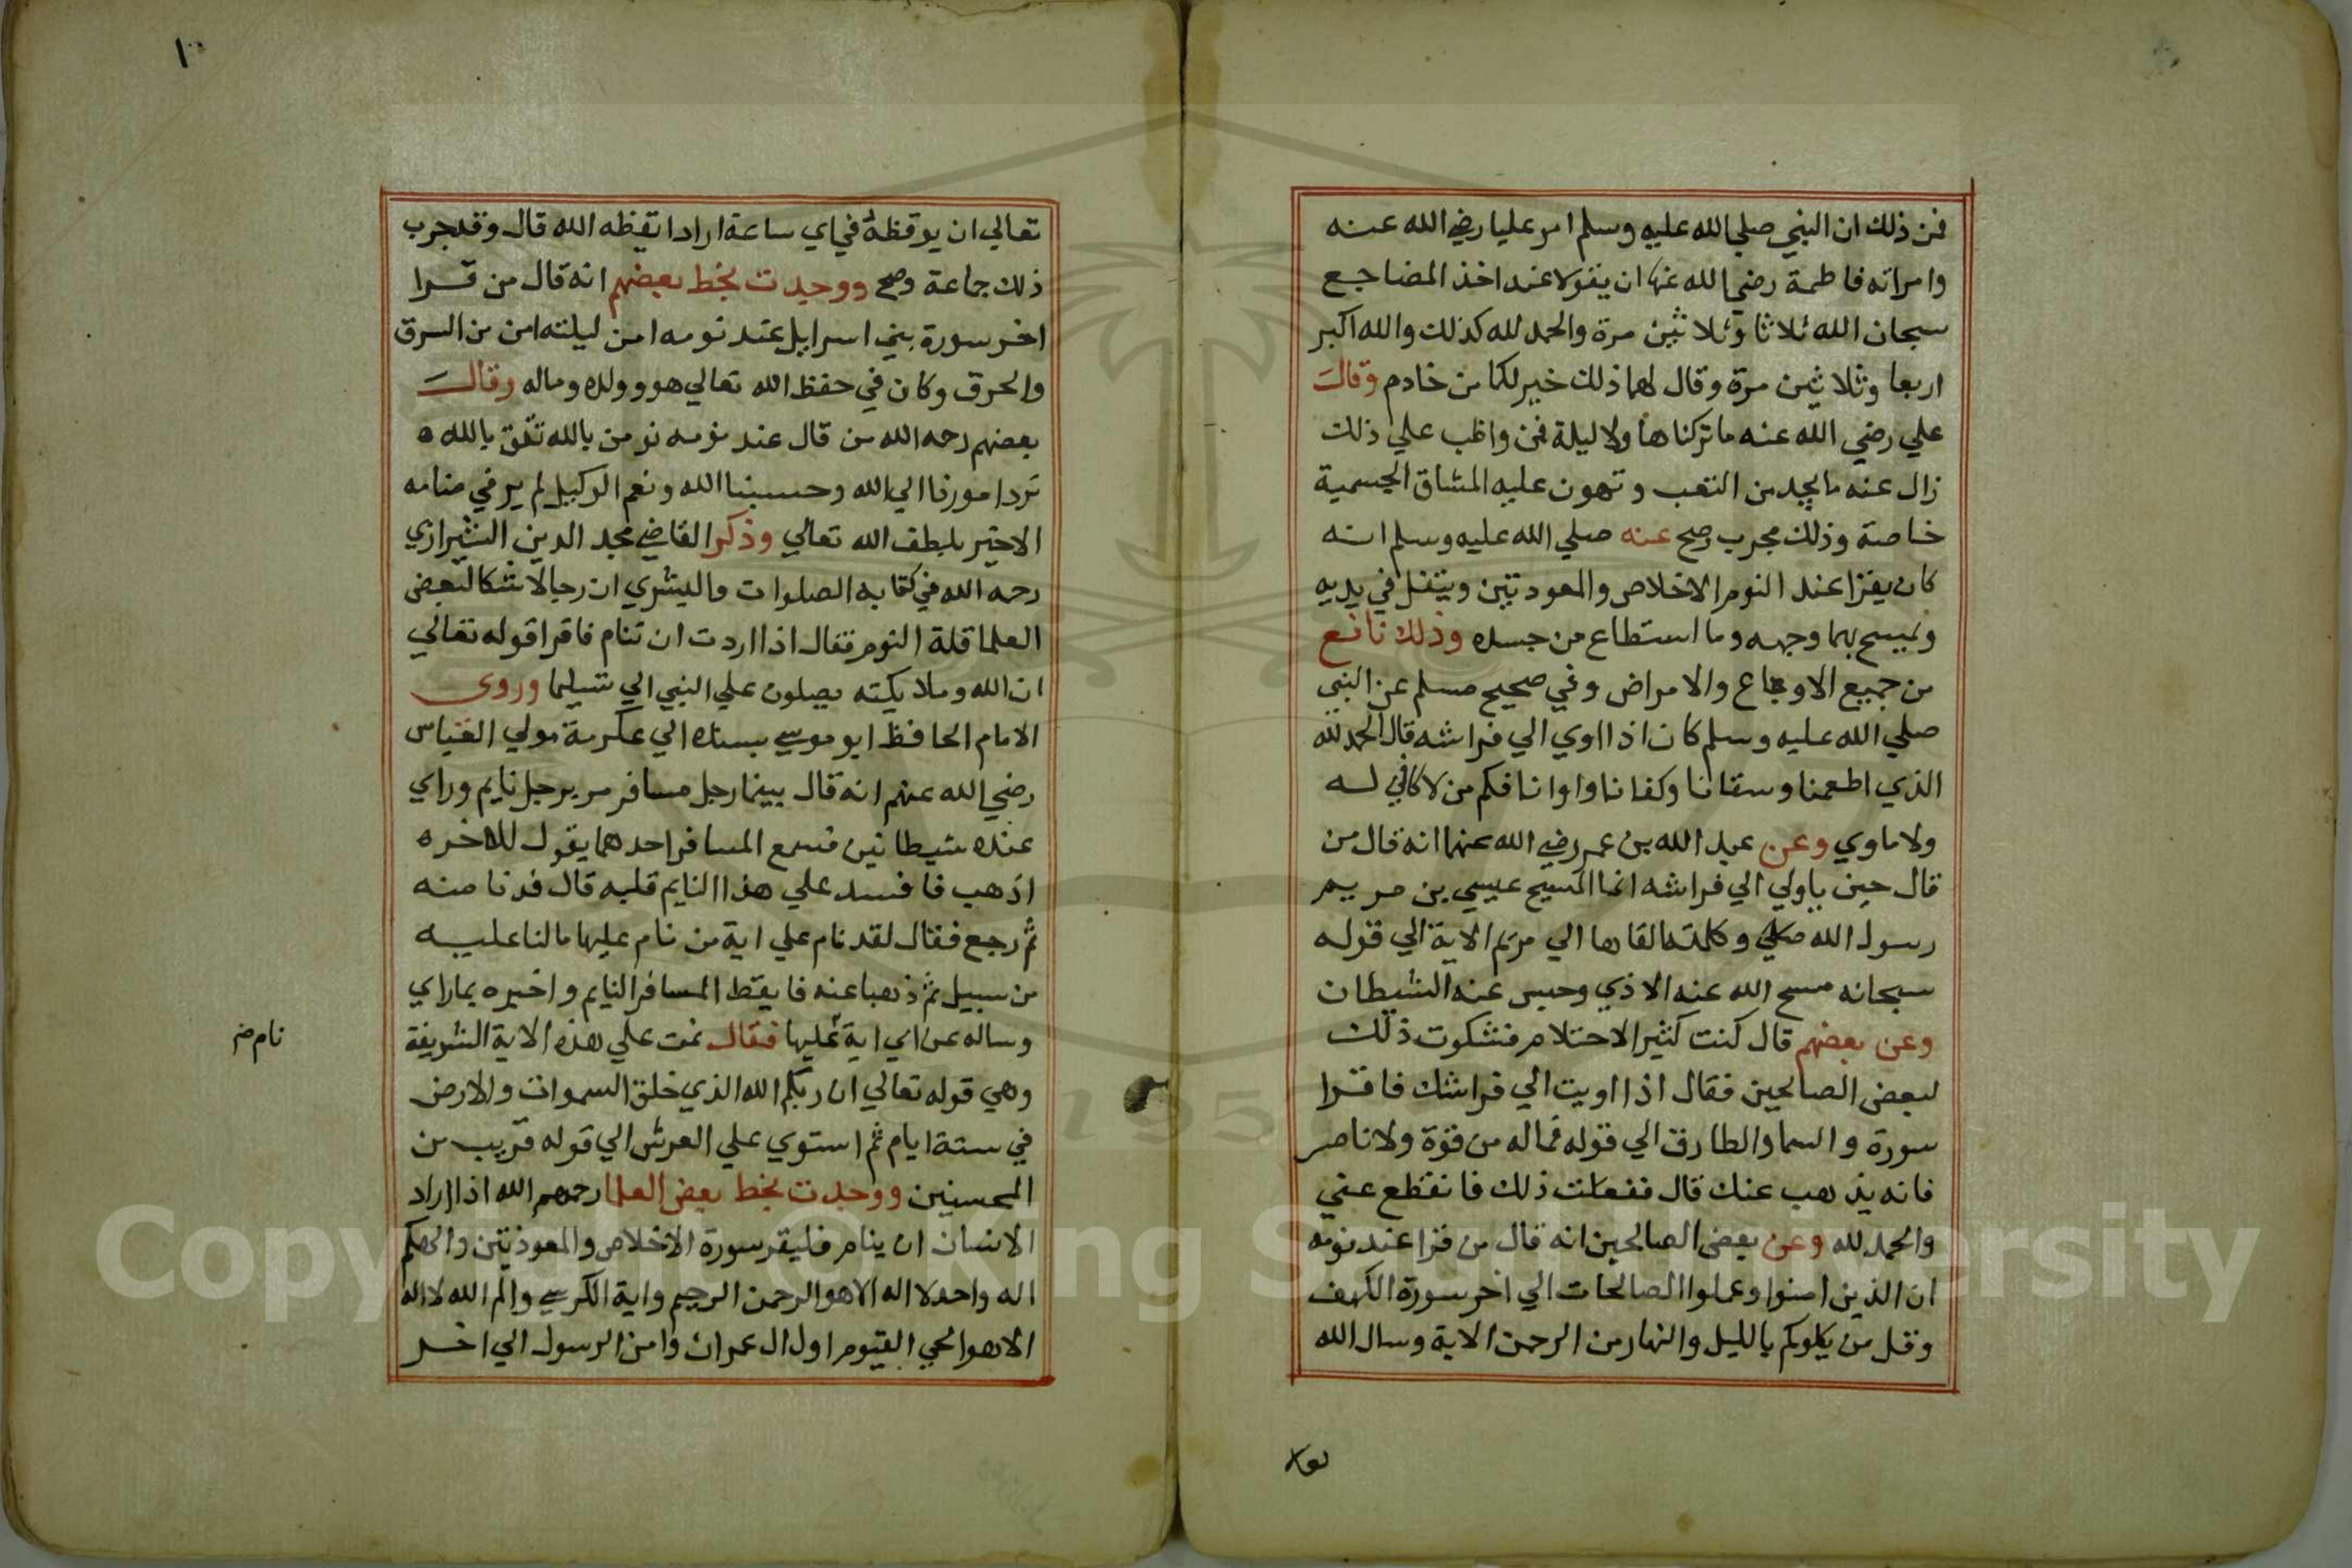 فمن ذلك ان النبي صلي الله عليه وسلم امر عليا رضي الله عنه
وامراته فاطمة رضي الله عنها ان يقولا عند اخذ المضاجع
سبحان الله ثلاثا وثلاثين مرة والحمد لله كذلك والله اكبر
اربعا وثلاثين مرة وقال لهما ذلك خير لكما من خادم وقال
علي رضي الله عنه ما تركناها ولا ليلة فمن واظب علي ذلك
زال عنه ما يجد من التعب وتهون عليه المشاق الجسمية
خاصة وذلك مجرب وصح عنه صلي الله عليه وسلم انه
كان يقرا عند النوم الاخلاص والمعوذتين ويتفل في يديه
ويمسح بهما وجهه وما استطاع من جسده وذلك نافع
من جميع الاوجاع والامراض وفي صحيح مسلم عن النبي
صلي الله عليه وسلم كان اذا اوي الي فراشه قال الحمد لله
الذي اطعمنا وسقانا وكفانا واوانا فكم من لا كافي له
ولا ماوي وعن عبد الله بن عمر رضي الله عنهما انه قال من
قال حين ياوي الي فراشه انما المسيح عيسي بن مريم
رسول الله وكلمته القاها الي مريم الاية الي قوله
سبحانه مسح الله عنه الاذي وحبس عنه الشيطان
وعن بعضهم قال كنت كثير الاحتلام فشكوت ذلك
لبعض الصالحين فقال اذا اويت الي فراشك فاقرا
سورة والسما والطارق الي قوله فماله من قوة ولا ناصر
فانه يذهب عنك قال ففعلت ذلك فانقطع عني
والحمد لله وعن بعض الصالحين انه قال من قرا عند نومه
ان الذين امنوا وعملوا الصالحات الي اخر سورة الكهف
وقل من يكلوكم بالليل والنهار من الرحمن الاية وسال الله
١٠
تعالي ان يوقظه في اي ساعة اراد ايقظه الله قال وقد جرب
ذلك جماعة وصح ووجدت بخط بعضهم انه قال من قرا
اخر سورة بني اسرايل عند نومه امن ليلته امن من السرق
والحرق وكان في حفظ الله تعالي هو وولده وماله وقال
بعضهم رحمه الله من قال عند نومه نومن بالله نثق بالله
نرد امورنا الي الله وحسبنا الله ونعم الوكيل لم ير في منامه
الا خير بلطف الله تعالي وذكر القاضي مجد الدين الشيرازي
رحمه الله في كتابه الصلوات والبشري ان رجلا شكا لبعض
العلما قلة النوم فقال اذا اردت ان تنام فاقرا قوله تعالي
ان الله وملايكته يصلون علي النبي الي تسليما وروي
الامام الحافظ ابو موسي بسنده الي عكرمة مولي العباس
رضي الله عنهم انه قال بينما رجل مسافر مر برجل نايم وراي
عنده شيطانين فسمع المسافر احدهما يقول للاخر
اذهب فافسد علي هذا النايم قلبه قال فدنا منه
ثم رجع فقال لقد نام علي اية من نام عليها ما لنا عليه
من سبيل ثم ذهبا عنه فايقظ المسافر النايم واخبره بما راي
وساله عن اي اية عليها فقال نمت علي هذه الاية الشريفة
نام ضر
وهي قوله تعالي ان ربكم الله الذي خلق السموات والارض
في ستة ايام ثم استوي علي العرش الي قوله قريب من
المحسنين ووجدت بخط بعض العلما رحمهم الله اذا اراد
الانسان ان ينام فليقر سورة الاخلاص والمعوذتين والهكم
اله واحد لا اله الا هو الرحمن الرحيم واية الكرسي والم الله لا اله
الا هو الحي القيوم اول ال عمران وامن الرسول الي اخر
Copyright © King Saud University
1957